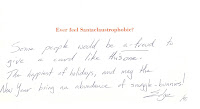 Ever Feel Santaclaustrophobic?
Some people would be a-fraid to
give a card like this one -
The happiest of holidays, and may the
New Year bring an abundance of snuggle-bunnies!